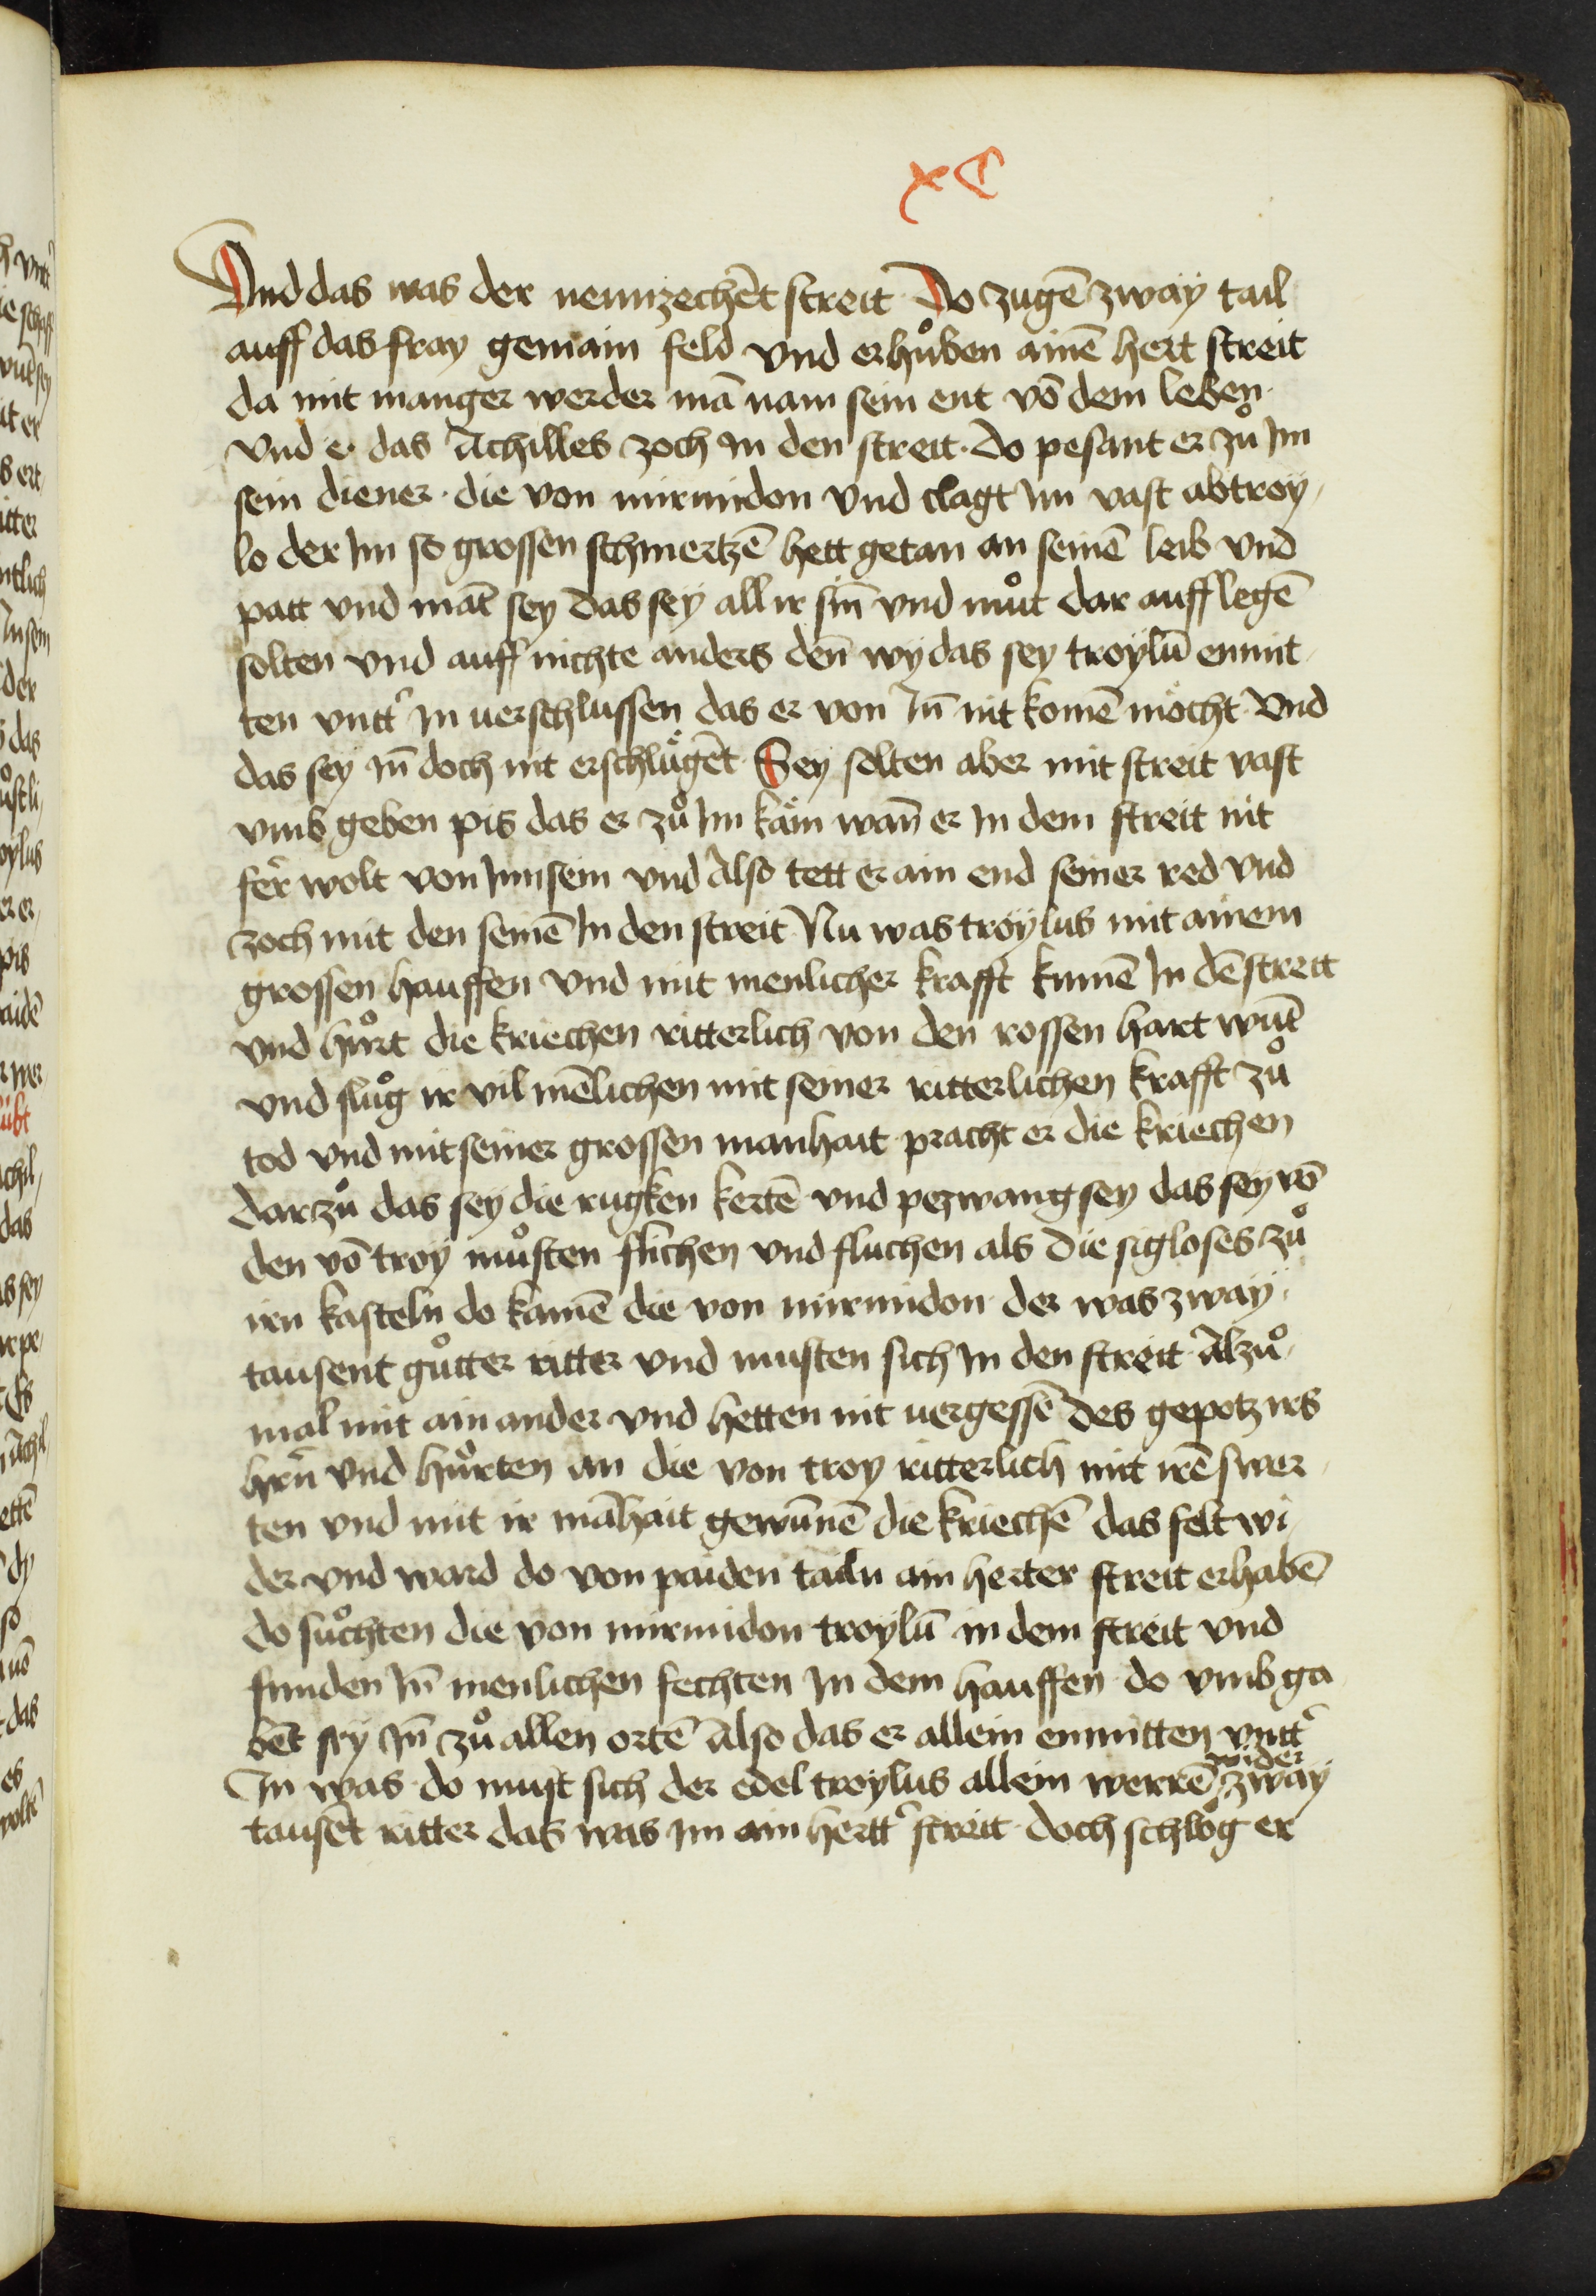 xc
Vnd das was der neunzechēt streit Do zugē zwaÿ tail
auff das fray gemain feld vnd erhůben ainē hert streit
da mit manger werder mā nam sein ent vō dem leben·
vnd e· das Achilles zoch In den streit· do pesant er zů Im
sein diener· die von mirmidon vnd clagt Im vast ab troy¬
lo der Im so grossen schmertzē hett getan an seinē leib vnd
patt vnd māt sey das seÿ all ir sīn vnd můt dar auff legē
solten vnd auff nichte anders deñ wy das sey troylū enmit¬
ten vntt͛ In uerschlussen das er von Iñ nit komē möcht Vnd
das seÿ Iñ doch nit erschlügēt· Sey solten aber mit streit vast
vmb geben pis das er zů Im käm wañ er In dem streit nit
fer͛ wolt von Im sein vnd Also tett er ain end seiner red vnd
zoch mit den seinē In den streit Nu was troÿlus mit ainem
grossen hauffen vnd mit menlicher krafft kumē In dē streitt
vnd hůrt die kriechen ritterlich von den rossen hart wūt
vnd slůg ir vil mēlichen mit seiner ritterlichen krafft zů
tod vnd mit seiner grossen manhait pracht er die kriechen
darzů das seÿ die rugken kertē vnd pezwang sey das sey vō
den vō troÿ můsten flichen vnd fluchen als die sigloses zů
irn kasteln do kamē die von mirmidon der was zwaÿ·
tausent gůtter ritter vnd musten sich In den streit Alzů¬
mal mit ain ander vnd hetten nit uergessē des gepotz irs
hrñ vnd hůrten an die von troy ritterlich mit irē swer¬
ten vnd mit ir māhait gewunnē die kriechē das felt wi¬
der vnd ward do von paiden tailn ain herter streit erhabē
do sůchten die von mirmidon troÿlū in dem streit vnd
funden Iñ menlichen fechten In dem hauffen do vmb ga¬
bēt seÿ Iñ zů allen ortē Also das er allein enmitten vntt͛
In was· do must sich der edel troylus allein werrē wider zwaÿ
tausēt ritter das was Im ain hertt͛ streit· doch schlög er